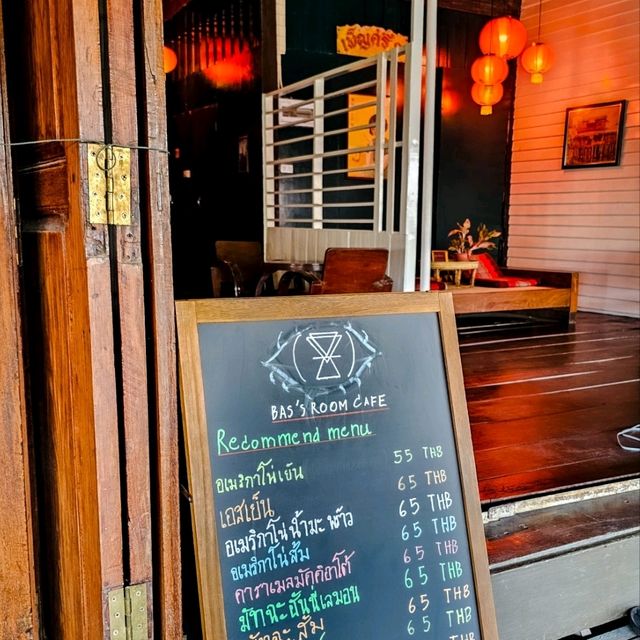 เชิญครับ
BAS'S ROOM CAFE
Recommend menu
อเมริกาโน่เย็น 55 THB
เอสเย็น 65 THB
อเมริกาโน่น้ำมะพร้าว 65 THB
อเมริกาโน่ส้ม 65 THB
คาราเมลมัคคิอาโต้ 65 THB
มัทฉะฮันนี่เลมอน 65 THB
มัทฉะส้ม 65 THB
65 THB